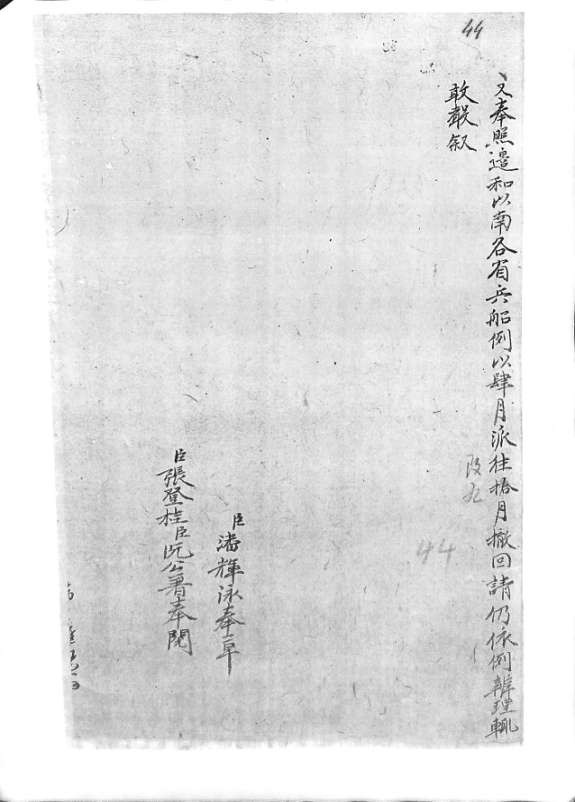 44
又奉照邊和以南各省兵船例以肆月派往拾月撤回請仍依例辦理輒
敢聲叙
44
臣潘輝泳奉草
臣張登桂臣阮公著奉閱